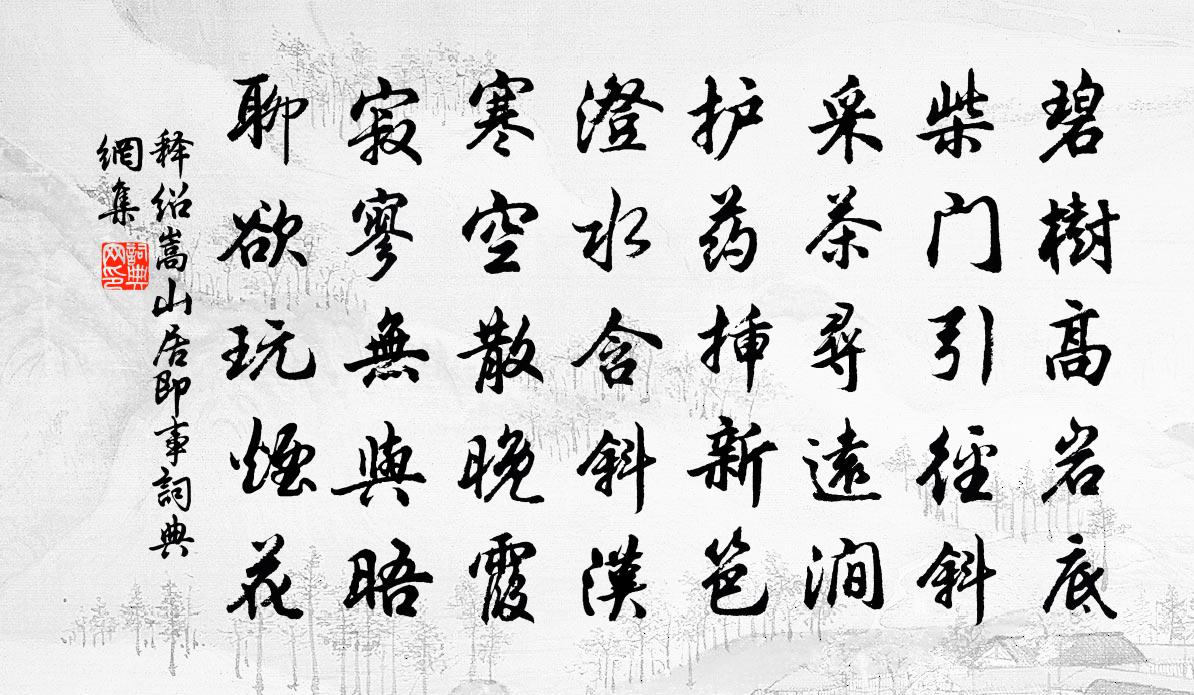 碧樹高岩底
柴门引徑斜
采茶尋遠澗
护药挿新笆
澄水含斜漢
寒空散晚霞
寂寥無與晤
聊欲玩煙花
释绍嵩山居即事詞典
網集
詞典网印